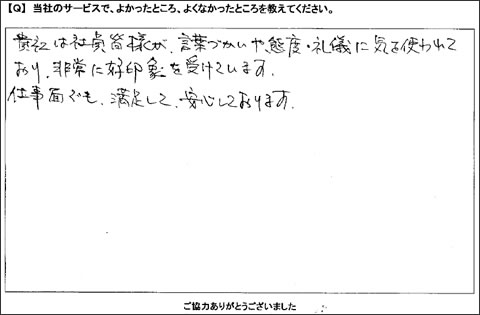 【Q】 当社のサービスで、よかったところ、よくなかったところを教えてください。
貴社は社員皆様が、言葉づかいや態度・礼儀に気を使われて
おり、非常に好印象を受けています。
仕事面でも、満足して、安心しております。
ご協力ありがとうございました